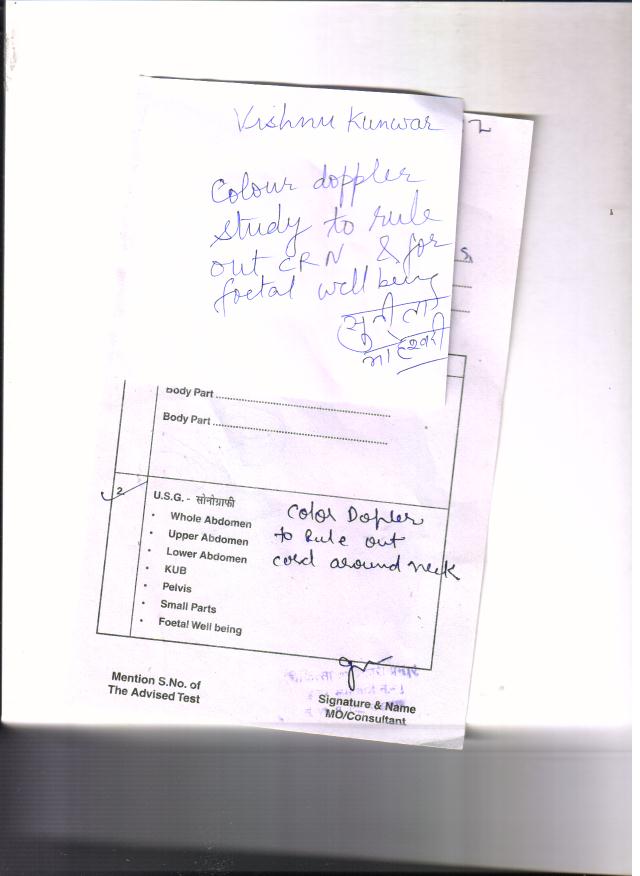 Vishnu Kunwar
Colour doppler
study to rule
out CRN & for
foetal well being
2
S.
Body Part
Body Part
2. U.S.G. - सोनोग्राफी
• Whole Abdomen
• Upper Abdomen
• Lower Abdomen
• KUB
• Pelvis
• Small Parts
• Foetal Well being
Color Dopler
to Rule out
cord around neck
Mention S.No. of
The Advised Test
Signature & Name
MO/Consultant